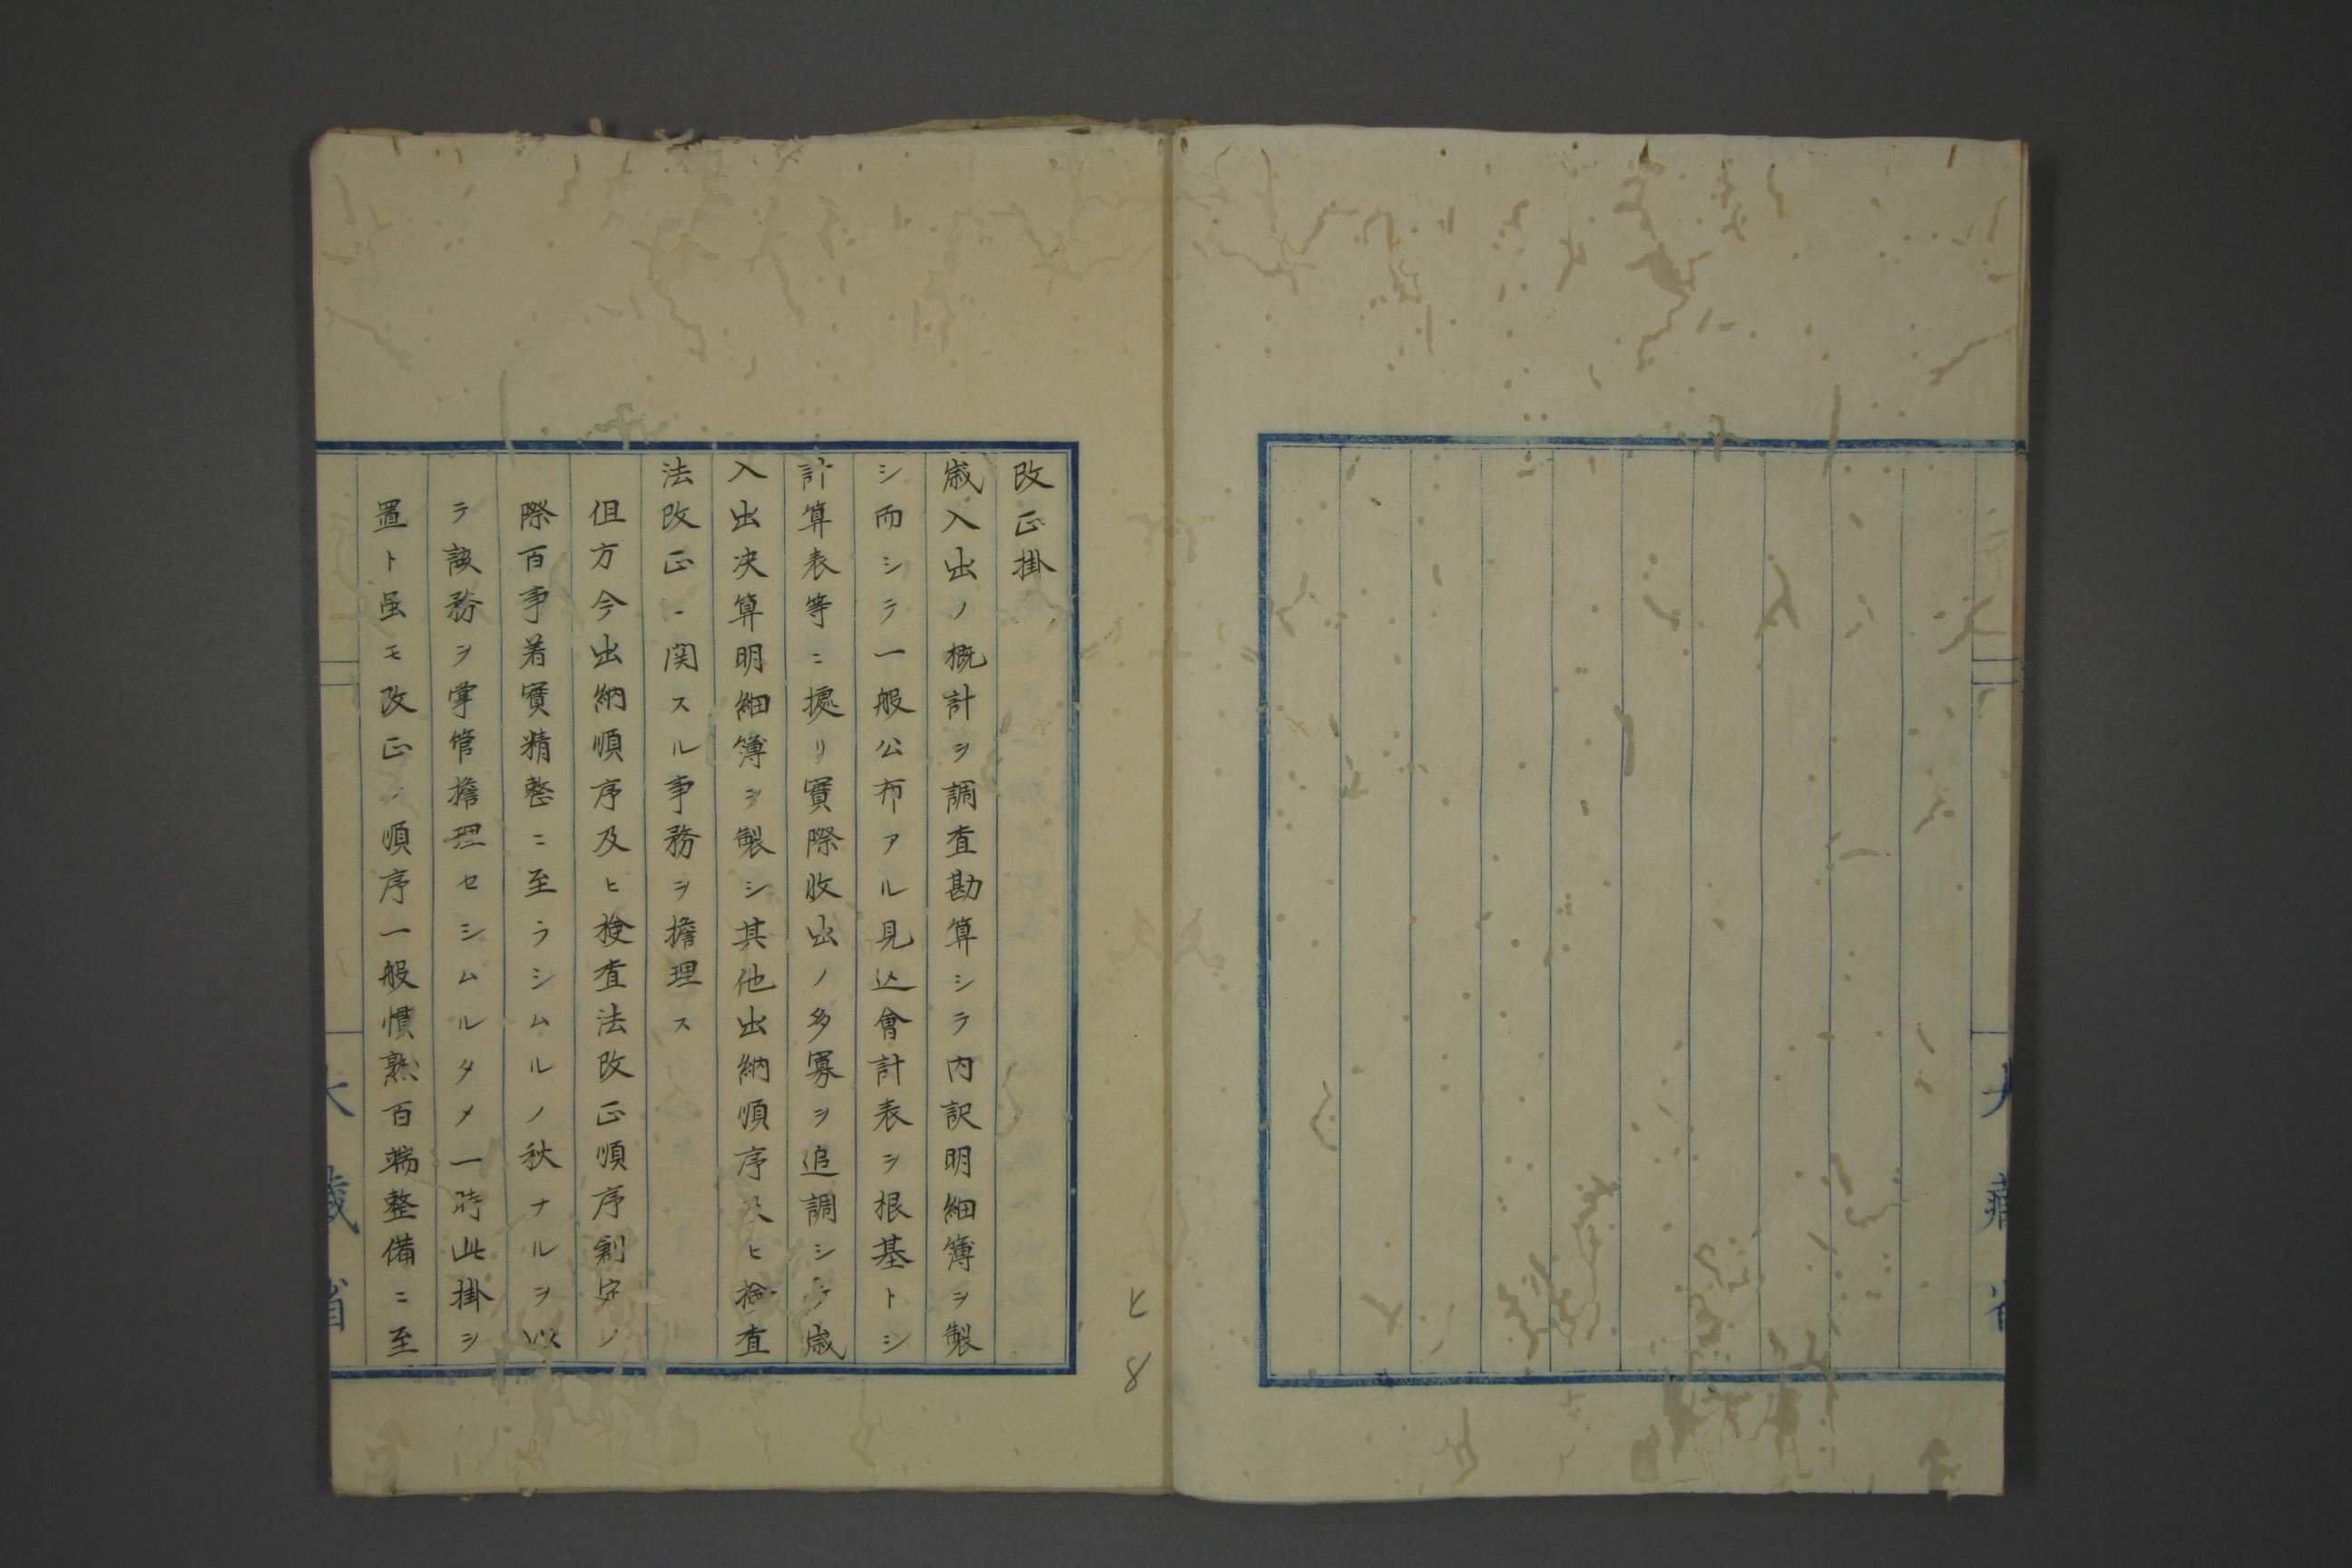 大藏省
改正掛
歳入出ノ概計ヲ調査勘算シテ内訳明細簿ヲ製
シ而シテ一般公布アル見込會計表ヲ根基トシ
計算表等ニ據リ實際收出ノ多寡ヲ追調シテ歳
入出决算明細簿ヲ製シ其他出納順序及ヒ検査
法改正ニ関スル事務ヲ擔理ス
但方今出納順序及ヒ検査法改正順序創定ノ
際百事着實精整ニ至ラシムルノ秋ナルヲ以
テ該務ヲ掌管擔理セシムルタメ一時此掛ヲ
置ト虽モ改正ノ順序一般慣熟百端整備ニ至
大藏省
と8